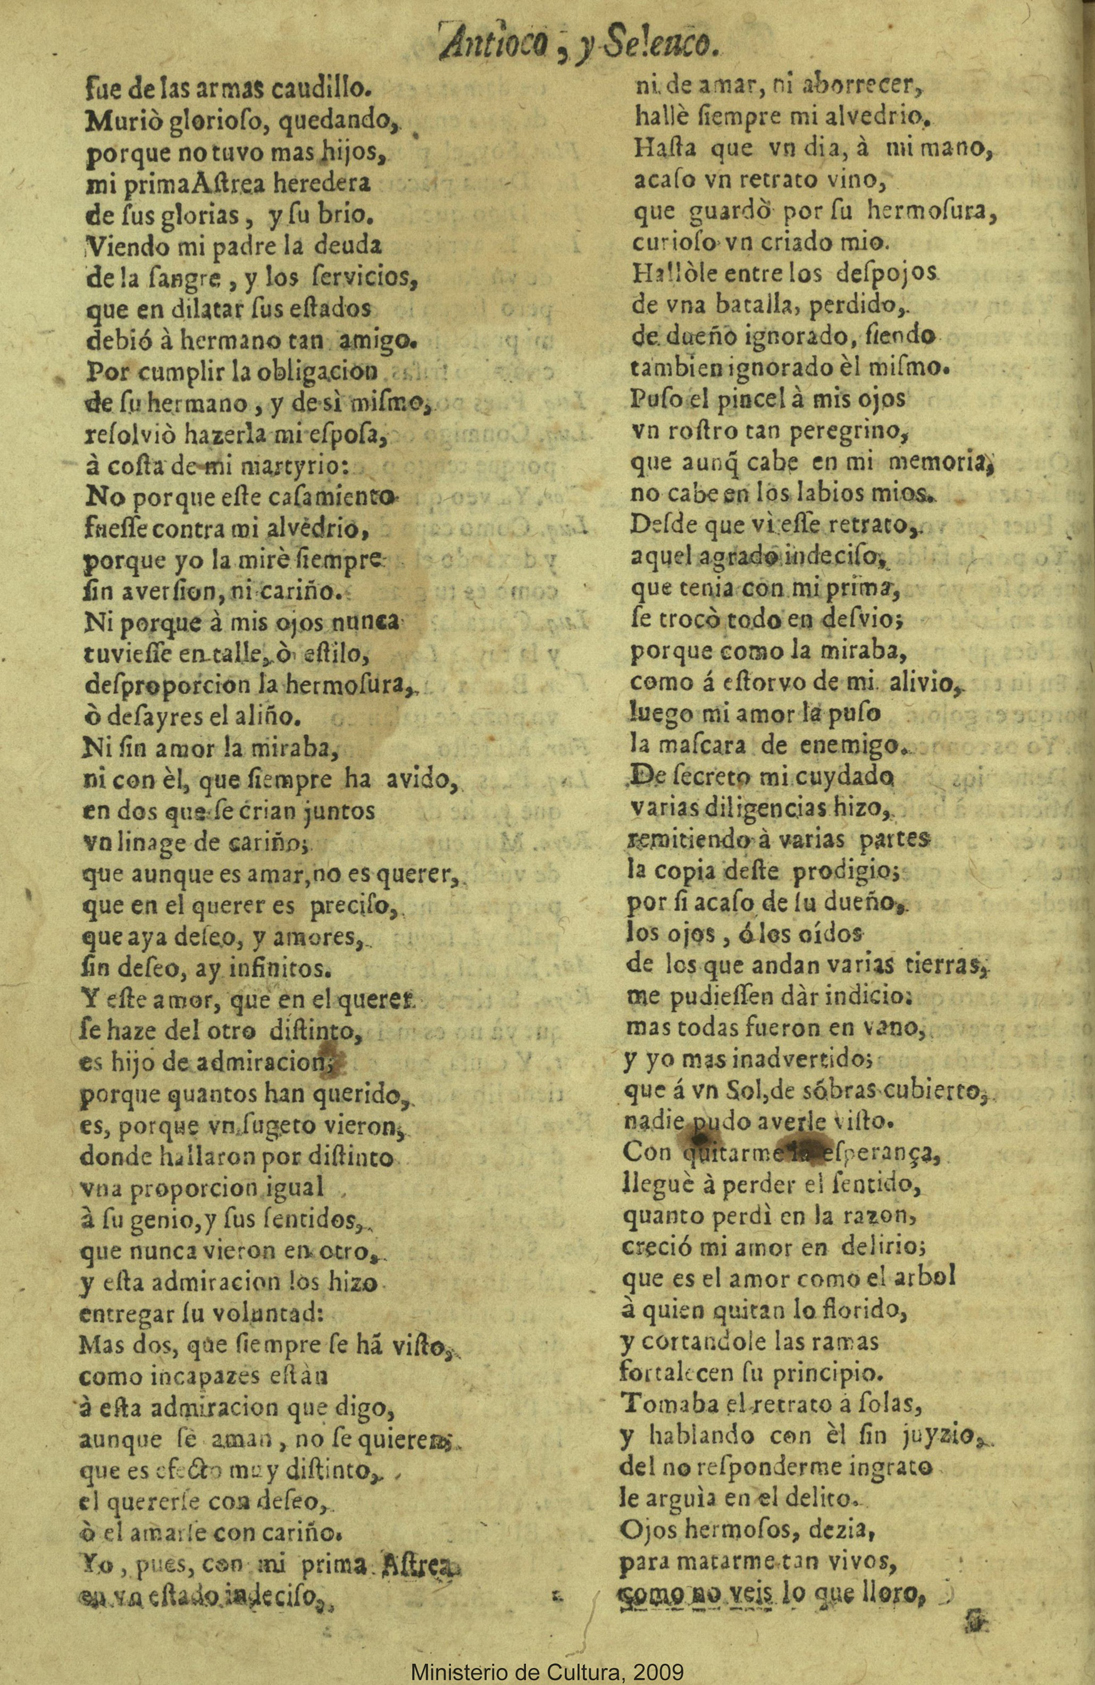 Antioco, y Seleuco.
fue de las armas caudillo.
Muriò glorioſo, quedando,
porque no tuvo mas hijos,
mi prima Aſtrea heredera
de ſus glorias, y ſu brio.
Viendo mi padre la deuda
de la ſangre, y los ſervicios,
que en dilatar ſus eſtados
debió à hermano tan amigo.
Por cumplir la obligacion
de ſu hermano, y de sì miſmo,
reſolviò hazerla mi eſpoſa,
à coſta de mi martyrio:
No porque eſte caſamiento
fueſſe contra mi alvedrio,
porque yo la mirè ſiempre
ſin averſion, ni cariño.
Ni porque à mis ojos nunca
tuvieſſe en talle, ò eſtilo,
deſproporcion la hermoſura,
ò deſayres el aliño.
Ni ſin amor la miraba,
ni con èl, que ſiempre ha avido,
en dos que ſe crian juntos
vn linage de cariño;
que aunque es amar, no es querer,
que en el querer es preciſo,
que aya deſeo, y amores,
ſin deſeo, ay infinitos.
Y eſte amor, que en el querer
ſe haze del otro diſtinto,
es hijo de admiracion;
porque quantos han querido,
es, porque vn ſugeto vieron,
donde hallaron por diſtinto
vna proporcion igual
à ſu genio, y ſus ſentidos,
que nunca vieron en otro,
y eſta admiracion los hizo
entregar ſu voluntad:
Mas dos, que ſiempre ſe hã viſto,
como incapazes eſtàn
à eſta admiracion que digo,
aunque ſe aman, no ſe quieren;
que es efecto muy diſtinto,
el quererſe con deſeo,
ò el amarſe con cariño.
Yo, pues, con mi prima Aſtrea
en vn eſtado indeciſo,
ni de amar, ni aborrecer,
hallè ſiempre mi alvedrio.
Haſta que vn dia, à mi mano,
acaſo vn retrato vino,
que guardò por ſu hermoſura,
curioſo vn criado mio.
Hallòle entre los deſpojos
de vna batalla, perdido,
de dueño ignorado, ſiendo
tambien ignorado èl miſmo.
Puſo el pincel à mis ojos
vn roſtro tan peregrino,
que aunq̃ cabe en mi memoria,
no cabe en los labios mios.
Deſde que vi eſſe retrato,
aquel agrado indeciſo,
que tenia con mi prima,
ſe trocò todo en deſvio;
porque como la miraba,
como á eſtorvo de mi alivio,
luego mi amor la puſo
la maſcara de enemigo.
De ſecreto mi cuydado
varias diligencias hizo,
remitiendo à varias partes
la copia deſte prodigio;
por ſi acaſo de ſu dueño,
los ojos, ó los oídos
de los que andan varias tierras,
me pudieſſen dàr indicio:
mas todas fueron en vano,
y yo mas inadvertido;
que á vn Sol, de sõbras cubierto,
nadie pudo averle viſto.
Con quitarme la eſperança,
lleguè à perder el ſentido,
quanto perdì en la razon,
creció mi amor en delirio;
que es el amor como el arbol
à quien quitan lo florido,
y cortandole las ramas
fortalecen ſu principio.
Tomaba el retrato á ſolas,
y hablando con èl ſin juyzio,
del no reſponderme ingrato
le arguìa en el delito.
Ojos hermoſos, dezia,
para matarme tan vivos,
como no veis lo que lloro,
Ministerio de Cultura, 2009